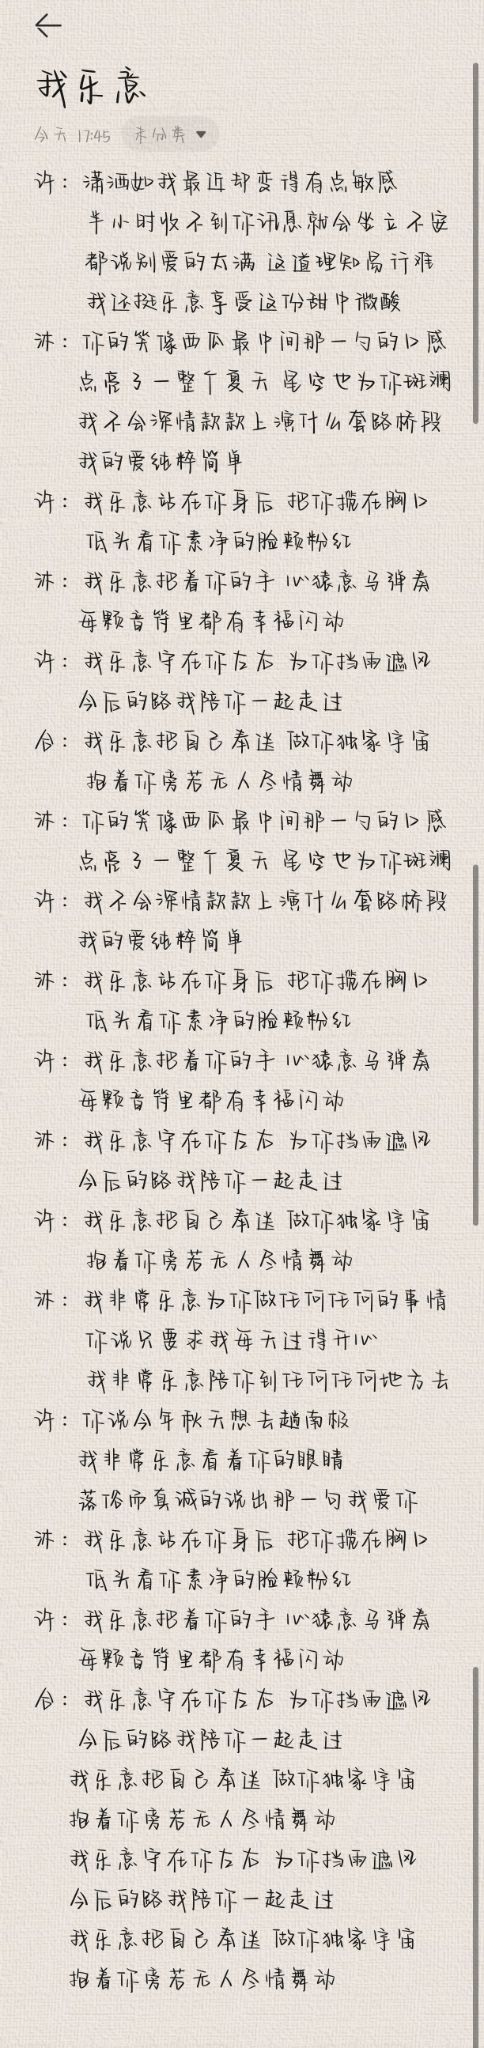 我乐意
今天 17:45 未分类
许：潇洒如我最近却变得有点敏感
半小时收不到你讯息就会坐立不安
都说别爱的太满 这道理知易行难
我还挺乐意享受这份甜中微酸
沐：你的笑像西瓜最中间那一勺的口感
点亮了一整个夏天 星空也为你斑斓
我不会深情款款上演什么套路桥段
我的爱纯粹简单
许：我乐意站在你身后 把你揽在胸口
低头看你素净的脸颊粉红
沐：我乐意把着你的手 心猿意马弹奏
每颗音符里都有幸福闪动
许：我乐意守在你左右 为你挡雨遮风
今后的路我陪你一起走过
合：我乐意把自己奉送 做你独家宇宙
抱着你旁若无人尽情舞动
沐：你的笑像西瓜最中间那一勺的口感
点亮了一整个夏天 星空也为你斑斓
许：我不会深情款款上演什么套路桥段
我的爱纯粹简单
沐：我乐意站在你身后 把你揽在胸口
低头看你素净的脸颊粉红
许：我乐意把着你的手 心猿意马弹奏
每颗音符里都有幸福闪动
沐：我乐意守在你左右 为你挡雨遮风
今后的路我陪你一起走过
许：我乐意把自己奉送 做你独家宇宙
抱着你旁若无人尽情舞动
沐：我非常乐意为你做任何任何的事情
你说只要求我每天过得开心
我非常乐意陪你到任何任何地方去
许：你说今年秋天想去趟南极
我非常乐意看着你的眼睛
落俗而真诚的说出那一句我爱你
沐：我乐意站在你身后 把你揽在胸口
低头看你素净的脸颊粉红
许：我乐意把着你的手 心猿意马弹奏
每颗音符里都有幸福闪动
合：我乐意守在你左右 为你挡雨遮风
今后的路我陪你一起走过
我乐意把自己奉送 做你独家宇宙
抱着你旁若无人尽情舞动
我乐意守在你左右 为你挡雨遮风
今后的路我陪你一起走过
我乐意把自己奉送 做你独家宇宙
抱着你旁若无人尽情舞动